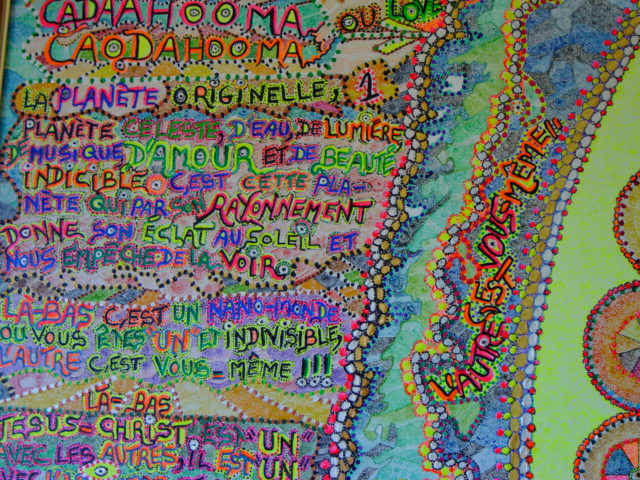 CADAAHOOMA
OU LOVE
CAODAHOOMA
LA PLANÈTE ORIGINELLE, 1
PLANÈTE CÉLESTE, D'EAU, DE LUMIÈRE,
DE MUSIQUE D'AMOUR ET DE BEAUTÉ
INDICIBLE C'EST CETTE PLA-
NÈTE QUI PAR SON RAYONNEMENT
DONNE SON ÉCLAT AU SOLEIL ET
NOUS EMPÊCHE DE LA VOIR.
LÀ-BAS C'EST UN NANO-MONDE
OU VOUS ÊTES "UN" ET INDIVISIBLE
L'AUTRE C'EST VOUS-MÊME !!!
LÀ-BAS
JESUS=CHRIST EST "UN"
AVEC LES AUTRES, IL EST "UN"
AVEC
L'AUTRE C'EST VOUS MÊME!!!